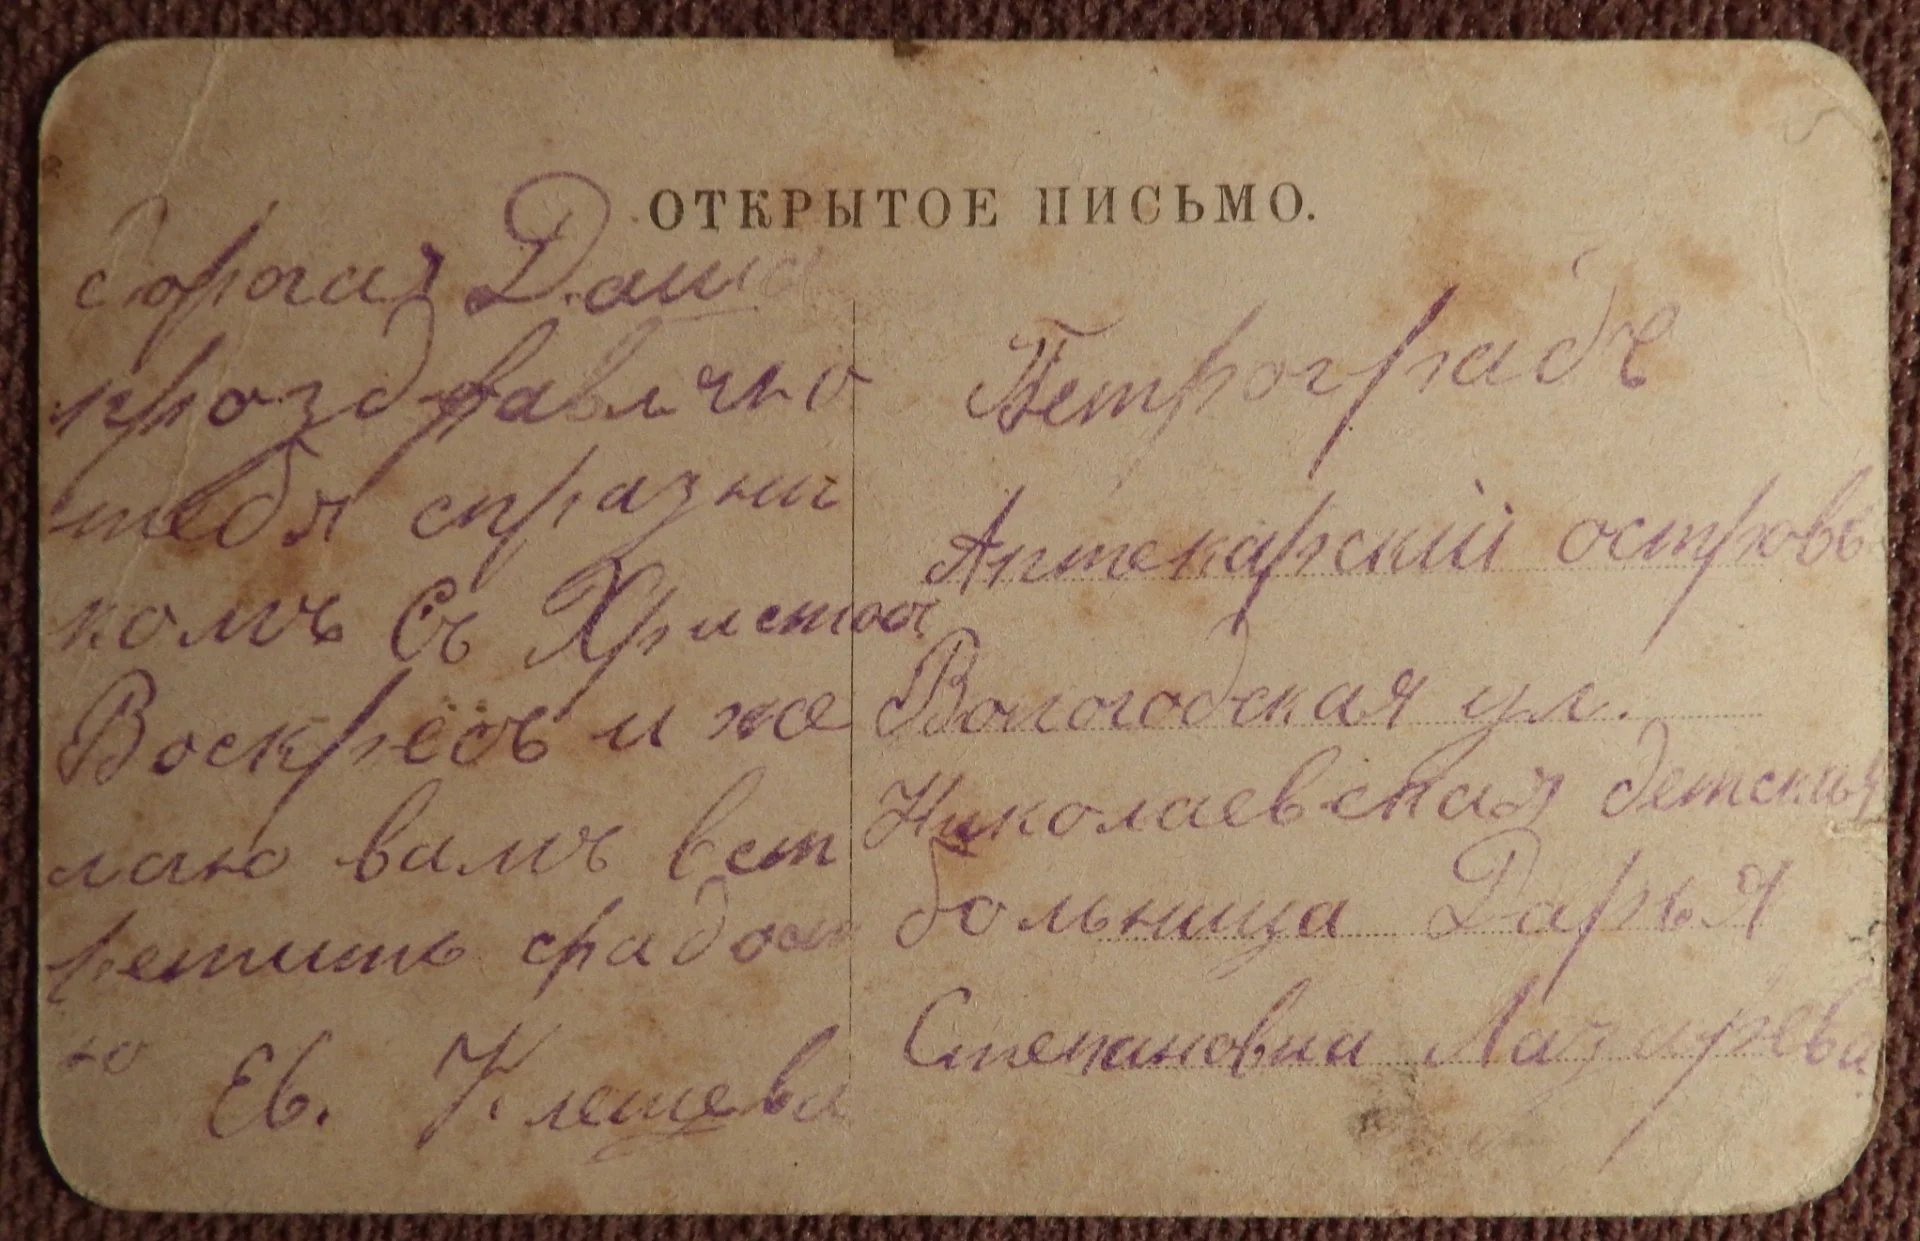 ОТКРЫТОЕ ПИСЬМО.
дорогая Даша
проздравляю
тебя спразни
комъ Съ Христос
Воскресъ и же
лаю вамъ вст
ретить срадост
ю
Ев. Клещева
Петроградъ
Аптекарский островъ
Вологодская ул.
Николаевская детская
больница Дарья
Степановна Лазарева